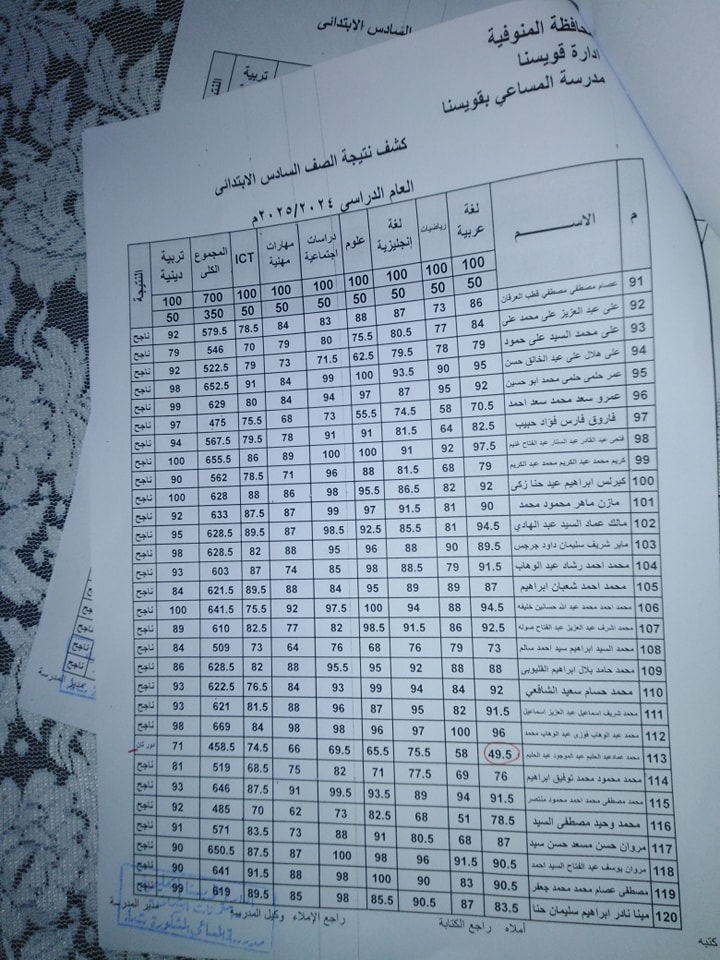 السادس الابتدائى
تربية
حافظة المنوفية
ادارة قويسنا
مدرسة المساعي بقويسنا
كشف نتيجة الصف السادس الابتدائى
العام الدراسي ٢٠٢٥/٢٠٢٤م
م الاســـــم لغة عربية رياضيات لغة إنجليزية علوم دراسات اجتماعية مهارات مهنية ICT المجموع الكلى تربية دينية النتيجة
100 100 100 100 100 100 100 700 100
50 50 50 50 50 50 50 350 50
91 عصام مصطفى مصطفى قطب العرقان 86 73 87 88 83 84 78.5 579.5 92 ناجح
92 على عبد العزيز على محمد على 84 77 80.5 75.5 80 79 70 546 79 ناجح
93 على محمد السيد على حمود 79 78 79.5 62.5 71.5 73 79 522.5 92 ناجح
94 على هلال على عبد الخالق حسن 95 90 93.5 100 99 84 91 652.5 98 ناجح
95 عمر حتمى حتمى محمد ابو حسين 92 95 87 97 94 84 80 629 99 ناجح
96 عمرو سعد محمد سعد احمد 70.5 58 74.5 55.5 73 68 75.5 475 97 ناجح
97 فاروق فارس فؤاد حبيب 82.5 64 81.5 91 91 78 79.5 567.5 94 ناجح
98 فتحى عبد القادر عبد الستار عبد الفتاح غنيم 97.5 92 91 100 100 89 86 655.5 100 ناجح
99 كريم محمد عبد الكريم محمد عبد الكريم 79 68 81.5 88 96 71 78.5 562 90 ناجح
100 كيرلس ابراهيم عيد حنا زكى 92 82 86.5 95.5 98 86 88 628 100 ناجح
101 مازن ماهر محمود محمد 90 81 91.5 97 99 87 87.5 633 92 ناجح
102 مالك عماد السيد عبد الهادي 94.5 81 85.5 92.5 98.5 87 89.5 628.5 95 ناجح
103 ماير شريف سليمان داود جرجس 89.5 90 88 96 95 88 82 628.5 98 ناجح
104 محمد احمد رشاد عبد الوهاب 91.5 79 88.5 98 85 74 87 603 93 ناجح
105 محمد احمد شعبان ابراهيم 87 89 89 95 84 88 89.5 621.5 84 ناجح
106 محمد احمد محمد عبد الله حسانين خليفه 94.5 88 94 100 97.5 92 75.5 641.5 100 ناجح
107 محمد اشرف عبد العزيز عبد الفتاح صوله 92.5 86 91.5 98.5 82 77 82.5 610 89 ناجح
108 محمد السيد ابراهيم سيد احمد سالم 73 79 76 68 76 64 73 509 84 ناجح
109 محمد حامد بلال ابراهيم القليوبى 88 88 92 95 95.5 88 82 628.5 86 ناجح
110 محمد حسام سعيد الشافعي 92 84 94 99 93 84 76.5 622.5 93 ناجح
111 محمد شريف اسماعيل عبد العزيز اسماعيل 91.5 82 95 87 96 88 81.5 621 93 ناجح
112 محمد عبد الوهاب فوزى عبد الوهاب محمد 96 100 97 96 98 98 84 669 98 ناجح
113 محمد عماد عبد الحليم عبد الموجود عبد الحليم 49.5 58 75.5 65.5 69.5 66 74.5 458.5 71 دور ثان
114 محمد محمود محمد توفيق ابراهيم 76 69 77.5 71 82 75 68.5 519 81 ناجح
115 محمد مصطفى محمد احمد محمود منتصر 91.5 94 89 93.5 99.5 91 87.5 646 93 ناجح
116 محمد وحيد مصطفى السيد 78.5 51 68 82.5 73 62 70 485 92 ناجح
117 مروان حسن مسعد حسن سيد 87 68 80.5 91 88 73 83.5 571 91 ناجح
118 مروان يوسف عبد الفتاح السيد احمد 90.5 91.5 96 98 100 87 87.5 650.5 90 ناجح
119 مصطفى عصام محمد محمد جعفر 90.5 83 90 100 98 88 91.5 641 90 ناجح
120 مينا نادر ابراهيم سليمان حنا 83.5 87 90.5 85.5 98 85 89.5 619 99 ناجح
كتبه أملاه راجع الكتابة راجع الإملاء وكيل المدرسة مدير المدرسة
مدير المدرسة